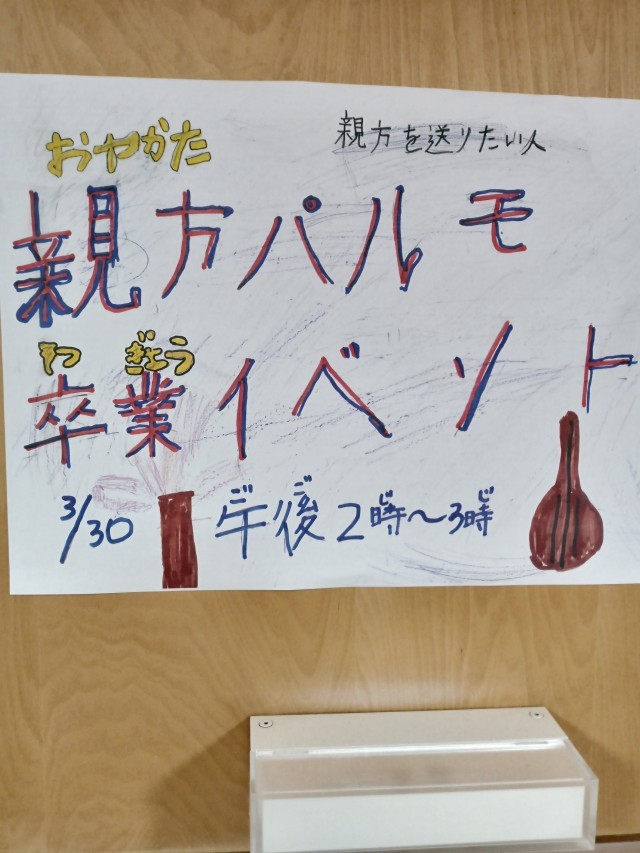 おやかた 親方を送りたい人
親方パルモ
そつ ぎょう
卒業イベント
ご ご じ じ
3/30 午後2時~3時